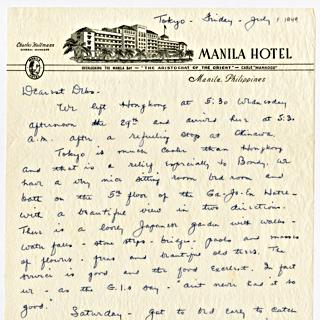 Tokyo - Friday - July 1 1949
Charles Holtmann
GENERAL MANAGER
MANILA HOTEL
OVERLOOKING THE MANILA BAY — "THE ARISTOCRAT OF THE ORIENT" — CABLE "MANHOCO"
Manila, Philippines
Dearest Debs -
We left Hongkong at 5:30 Wednesday
afternoon the 29th and arrived here at 5:30
A.M. after a refueling stop at Okinawa.
Tokyo is much cooler than Hongkong
and that is a relief especially to Bondy. We
have a very nice sitting room bed room and
bath on the 5th floor of the Ga-Jo-En Hotel -
with a beautiful view in two directions.
There is a lovely Japanese garden with walks -
water falls - stone steps - bridges - pools and masses
of flowers - ferns and beautiful old trees. The
service is good and the food excellent. In fact
we - as the G.I.s say - "aint never had it so
good."
Saturday - got to bed early to catch